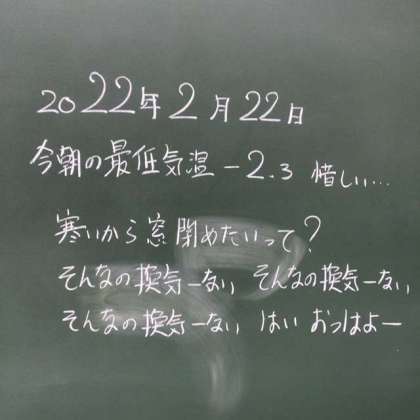 2022年2月22日
今朝の最低気温 -2.3 惜しい…
寒いから窓閉めたいって?
そんなの換気ーない そんなの換気ーない
そんなの換気ーない はい おっはよー